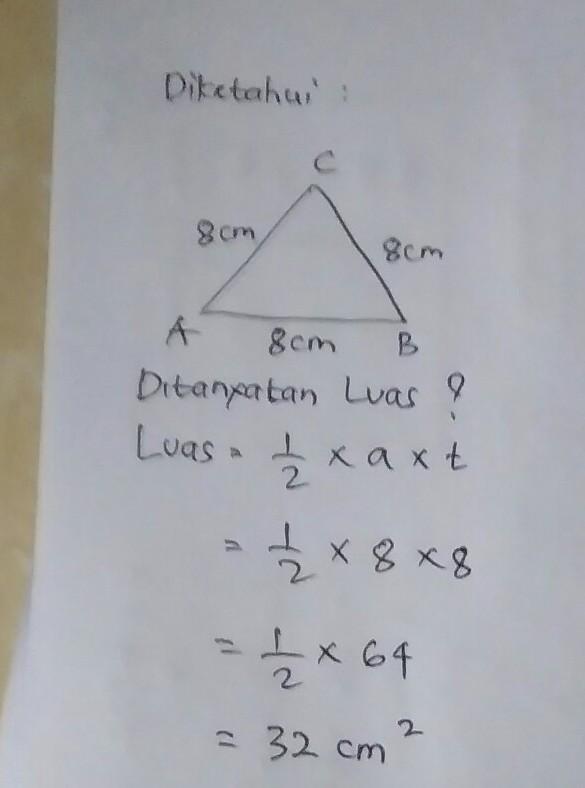 Diketahui :
C
8cm
8cm
A
8cm
B
Ditanyatan Luas ?
Luas = 1/2 x a x t
= 1/2 x 8 x 8
= 1/2 x 64
= 32 cm²